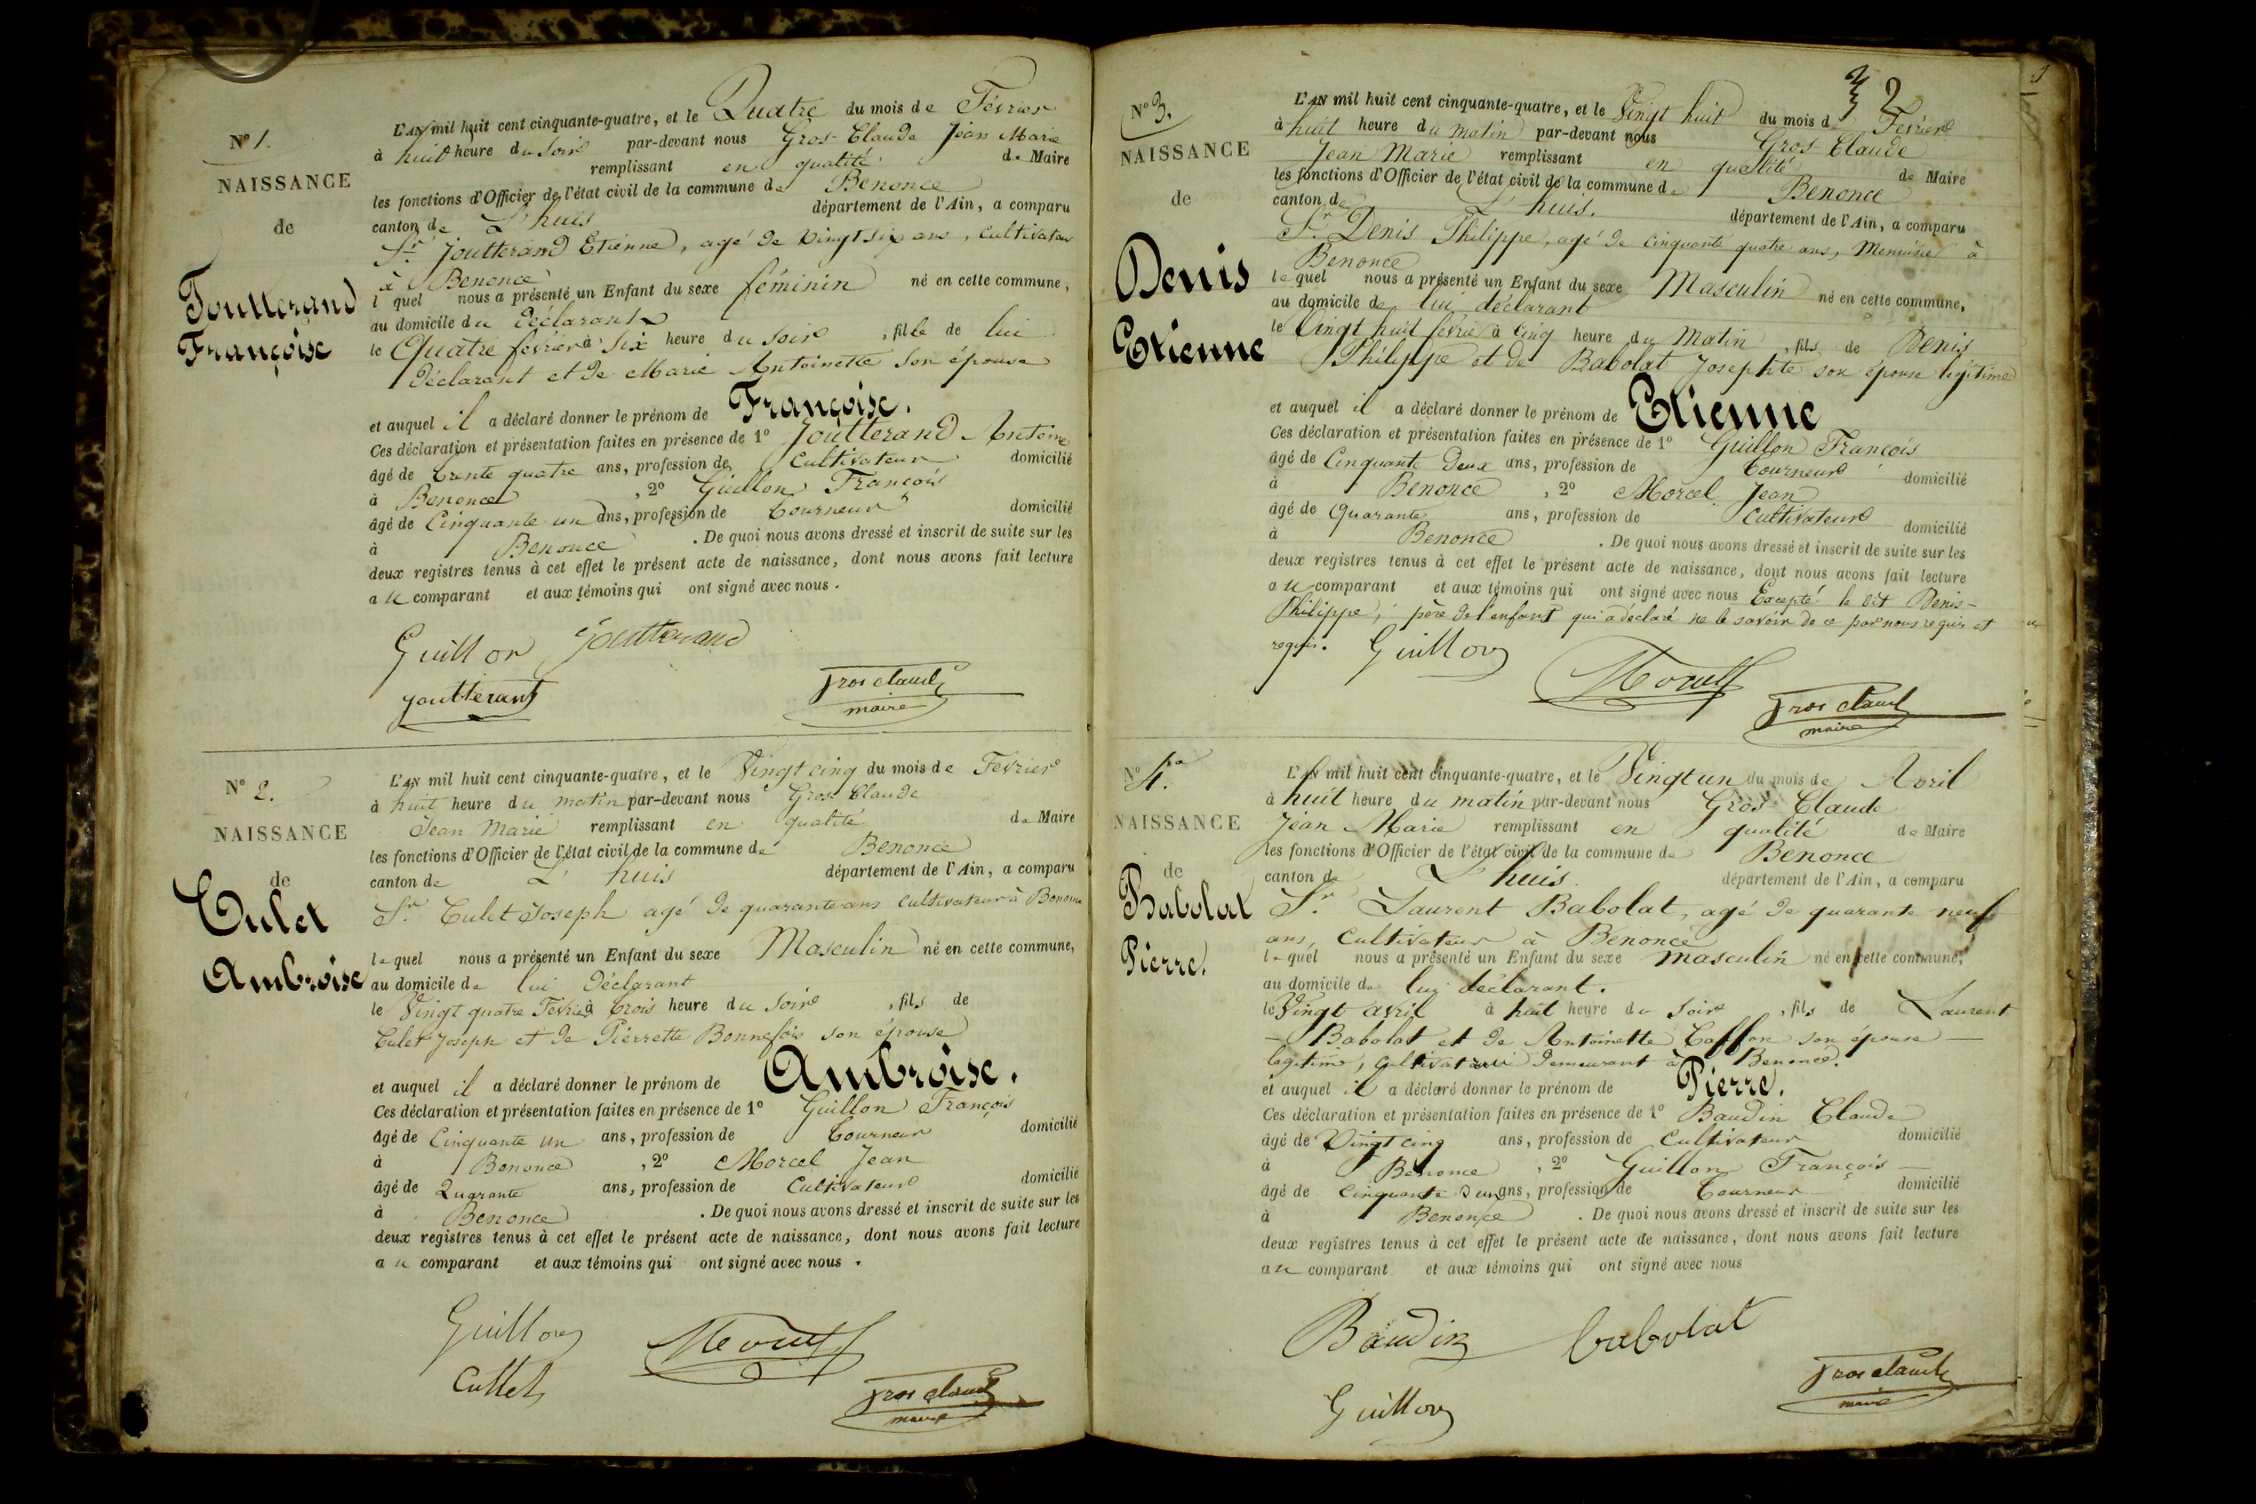 N° 1.
NAISSANCE
de
Joutterand
Françoise
L'AN mil huit cent cinquante-quatre, et le Quatre du mois de Février
à huit heure du soir par-devant nous Gros-Claude Jean Marie
remplissant en qualité de Maire
les fonctions d'Officier de l'état civil de la commune de Benonce
canton de L'huis département de l'Ain, a comparu
Sr Joutterand Etienne, agé de vingt six ans, cultivateur
à Benonce
l quel nous a présenté un Enfant du sexe féminin né en cette commune,
au domicile du déclarant
le Quatre février à six heure du soir , fille de lui
déclarant et de Marie Antoinette son épouse
et auquel il a déclaré donner le prénom de Françoise.
Ces déclaration et présentation faites en présence de 1° Joutterand Antoine
âgé de trente quatre ans, profession de Cultivateur domicilié
à Benonce , 2° Guillon François
âgé de Cinquante un ans, profession de tourneur domicilié
à Benonce . De quoi nous avons dressé et inscrit de suite sur les
deux registres tenus à cet effet le présent acte de naissance, dont nous avons fait lecture
au comparant et aux témoins qui ont signé avec nous.
Guillon Joutterand
joutterant gros claude
maire
N° 2.
NAISSANCE
de
Culet
Ambroise
L'AN mil huit cent cinquante-quatre, et le Vingt cinq du mois de Février
à huit heure du matin par-devant nous Gros Claude
Jean Marie remplissant en qualité de Maire
les fonctions d'Officier de l'état civil de la commune de Benonce
canton de L'huis département de l'Ain, a comparu
Sr Culet Joseph agé de quarante ans cultivateur à Benonce
le quel nous a présenté un Enfant du sexe Masculin né en cette commune,
au domicile de lui déclarant
le Vingt quatre Février à trois heure du soir , fils de
Culet Joseph et de Pierrette Bonnefois son épouse
et auquel il a déclaré donner le prénom de Ambroise.
Ces déclaration et présentation faites en présence de 1° Guillon François
âgé de Cinquante un ans, profession de tourneur domicilié
à Benonce , 2° Morcel Jean
âgé de Quarante ans, profession de Cultivateur domicilié
à Benonce . De quoi nous avons dressé et inscrit de suite sur les
deux registres tenus à cet effet le présent acte de naissance, dont nous avons fait lecture
au comparant et aux témoins qui ont signé avec nous.
Guillon
Cullet gros claude
maire
2
N° 3.
NAISSANCE
de
Denis
Etienne
L'AN mil huit cent cinquante-quatre, et le Vingt huit du mois d Février
à huit heure du matin par-devant nous Gros Claude
Jean Marie remplissant en qualité de Maire
les fonctions d'Officier de l'état civil de la commune de Benonce
canton de L'huis. département de l'Ain, a comparu
Sr Denis Philippe, agé de cinquante quatre ans, Menuisier à
Benonce
le quel nous a présenté un Enfant du sexe Masculin né en cette commune,
au domicile de lui déclarant
le Vingt huit février à Cinq heure du Matin , fils de Denis
Philippe et de Babolat Josephte son épouse légitime
et auquel il a déclaré donner le prénom de Etienne
Ces déclaration et présentation faites en présence de 1° Guillon François
âgé de Cinquante Deux ans, profession de tourneur domicilié
à Benonce , 2° Morcel Jean
âgé de Quarante ans, profession de cultivateur domicilié
à Benonce . De quoi nous avons dressé et inscrit de suite sur les
deux registres tenus à cet effet le présent acte de naissance, dont nous avons fait lecture
au comparant et aux témoins qui ont signé avec nous Excepté le dit Denis
Philippe, père de l'enfant qui a déclaré ne le savoir de ce par nous requis et
requis. Guillon
gros claude
maire
N° 4.
NAISSANCE
de
Babolat
Pierre.
L'AN mil huit cent cinquante-quatre, et le Vingt un du mois de Avril
à huit heure du matin par-devant nous Gros Claude
Jean Marie remplissant en qualité de Maire
les fonctions d'Officier de l'état civil de la commune de Benonce
canton de L'huis. département de l'Ain, a comparu
Sr Laurent Babolat, agé de quarante neuf
ans, cultivateur à Benonce
le quel nous a présenté un Enfant du sexe masculin né en cette commune,
au domicile de lui déclarant.
le Vingt avril à huit heure du soir , fils de Laurent
Babolat et de Antoinette Coffon son épouse
légitime, demeurant à Benonce.
et auquel il a déclaré donner le prénom de Pierre.
Ces déclaration et présentation faites en présence de 1° Baudin Claude
âgé de Vingt cinq ans, profession de Cultivateur domicilié
à Benonce , 2° Guillon François
âgé de Cinquante deux ans, profession de tourneur domicilié
à Benonce . De quoi nous avons dressé et inscrit de suite sur les
deux registres tenus à cet effet le présent acte de naissance, dont nous avons fait lecture
au comparant et aux témoins qui ont signé avec nous
Baudin babolat
gros claude
maire
Guillon